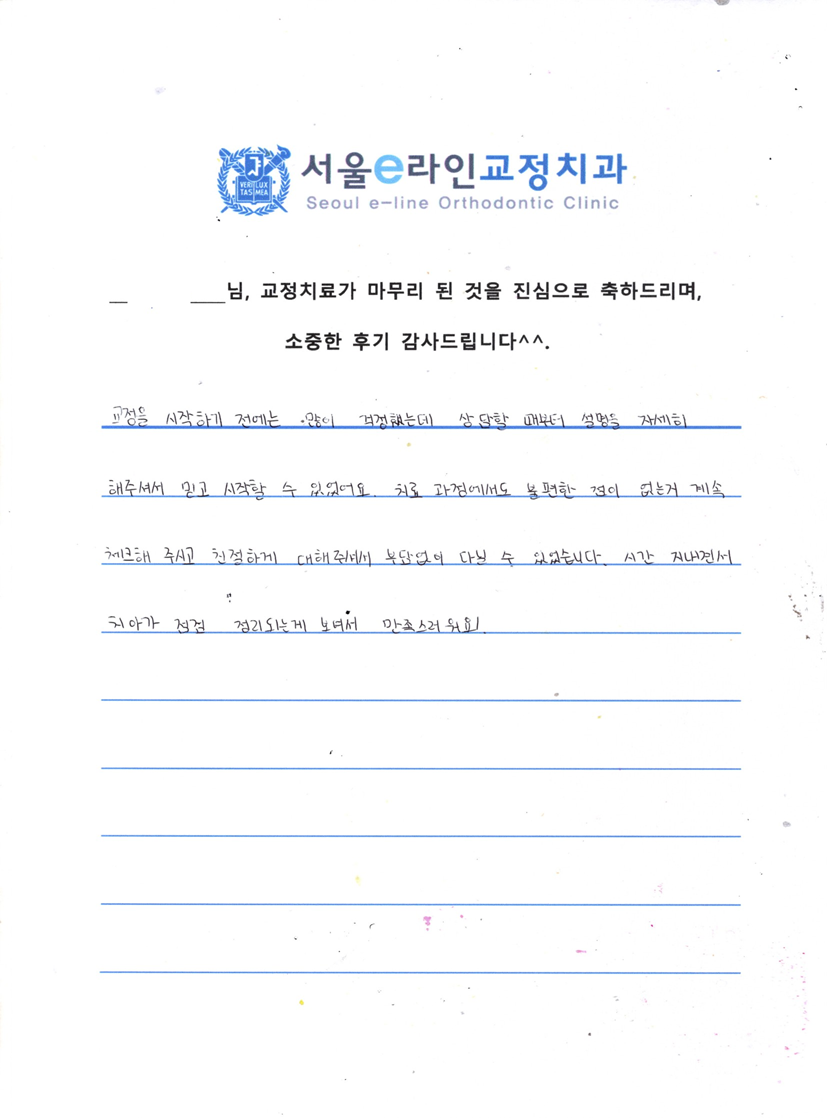 VERI LUX
TAS MEA
서울e라인교정치과
Seoul e-line Orthodontic Clinic
님, 교정치료가 마무리 된 것을 진심으로 축하드리며,
소중한 후기 감사드립니다^^.
교정을 시작하기 전에는 많이 걱정했는데 상담할 때부터 설명을 자세히
해주셔서 믿고 시작할 수 있었어요. 치료 과정에서도 불편한 점이 없는거 계속
체크해 주시고 친절하게 대해주셔서 부담없이 다닐 수 있었습니다. 시간 지내면서
치아가 점점 정리되는게 보여서 만족스러워요!